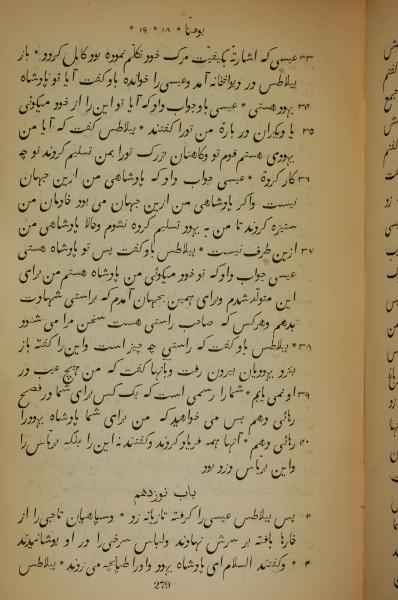 یوحنا * ۱۸ * ۱۹ *
۳۳ عیسی که اشارتهٔ بکیفیّت مرک خود تکلّم نموده بود کامل کردد * باز
پیلاطس در دیوانخانه آمد و عیسی را خوانده باو کفت آیا تو پادشاه
۳۴ یهود هستی * عیسی باو جواب داد که آیا تو این را از خود میکوئی
۳۵ یا دیکران در بارهٔ من تورا کفتند * پیلاطس کفت که آیا من
یهودی هستم قوم تو و کاهنان بزرک تورا بمن تسلیم کردند تو چه
۳۶ کار کردهٔ * عیسی جواب داد که پادشاهی من ازین جهان
نیست واکر پادشاهی من ازین جهان می بود خادمان من
ستیزه کردند تا من به یهود تسلیم کرده نشوم وحالا پادشاهی من
۳۷ ازین طرف نیست * پیلاطس باو کفت پس تو پادشاه هستی
عیسی جواب داد که تو خود میکوئی من پادشاه هستم من برای
این متولّد شدم وبرای همین بجهان آمدم که براستی شهادت
بدهم وهر کس که صاحب راستی هست سخن مرا می شنود
۳۸ * پیلاطس باو کفت که راستی چه چیز است واین را کفته باز
بنزد یهودیان بیرون رفت وبآنها کفت که من هیچ عیب در
۳۹ او نمی یابم * شما را رسمی است که یک کس برای شما در فصح
رهائی دهم پس می خواهید که من برای شما پادشاه یهود را
۴۰ رهائی دهم * آنها همه فریاد کردند وکفتند نه این را بلکه برباس را
واین برباس دزد بود
باب نوزدهم
پس پیلاطس عیسی را کرفته تازیانه زد * وسپاهیان تاجی را از
خارها بافته بر سرش نهادند ولباس سرخی را در او پوشانیدند
* وکفتند السّلام ای پادشاه یهود واورا طپانچه می زدند * پیلاطس
279